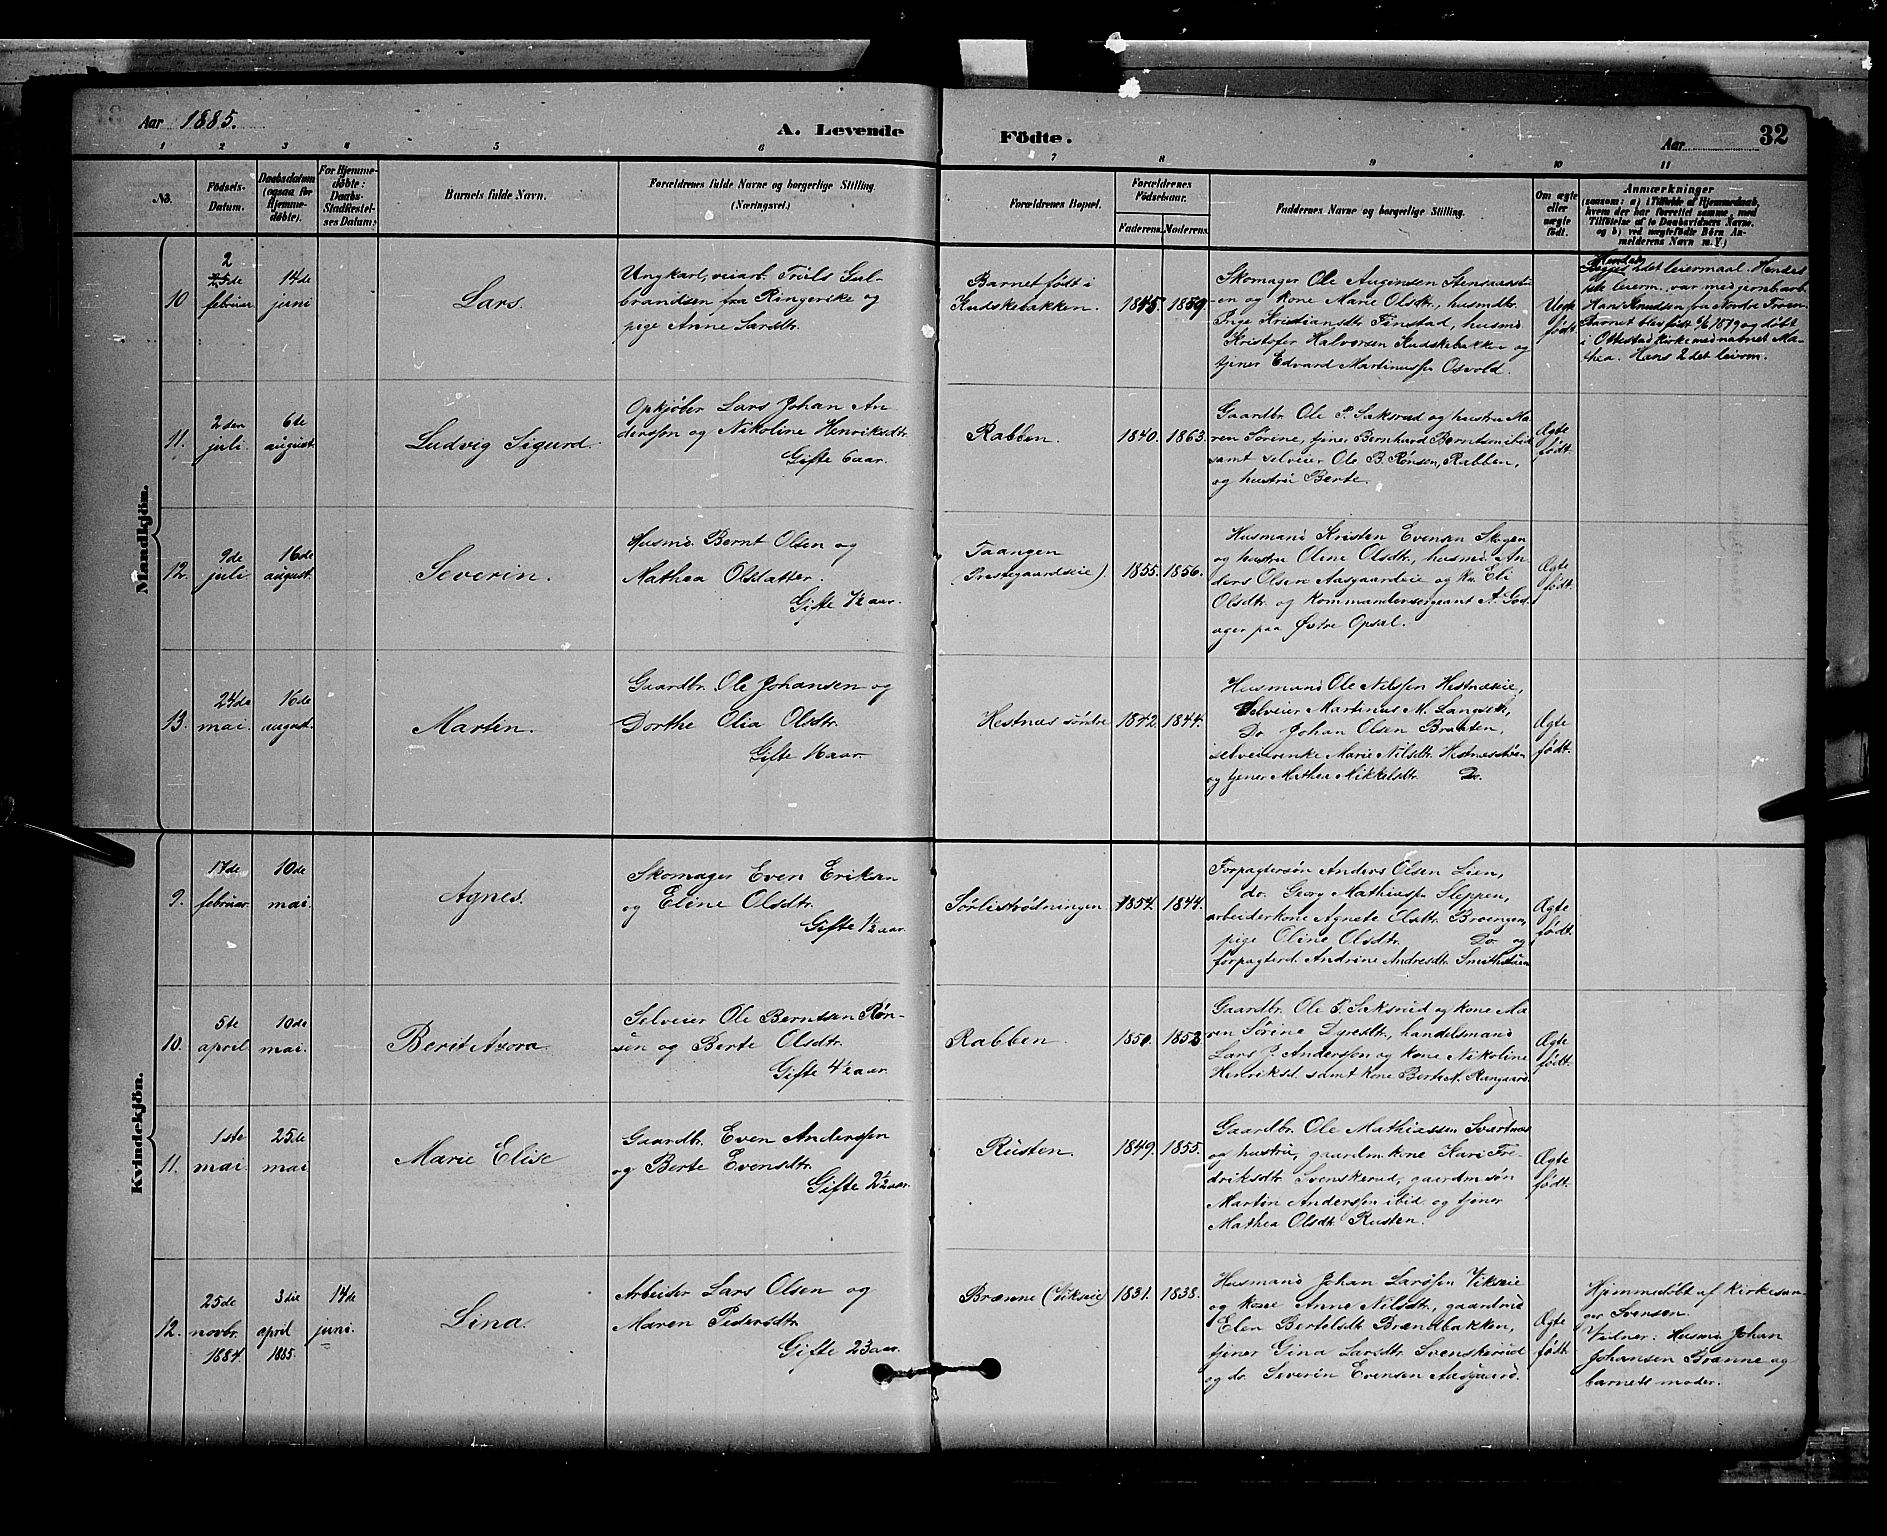 Aar 1885.
A. Levende
Födte.
Aar
32
1 2 3 4 5 6
7 8 9 10 11
No.
Födsels-
Datum.
Daabsdatum
(ogsaa for
Hjemme-
døbte).
For Hjemme-
døbte:
Daabs-
Stadfæstel-
ses Datum:
Barnets fulde Navn.
Forældrenes fulde Navne og borgerlige Stilling.
(Næringsvei.)
Forældrenes Bopæl.
Forældrenes
Födselsaar.
Faderens.
Moderens.
Faddernes Navne og borgerlige Stilling.
Om ægte
eller
uægte
født.
Anmærkninger
(saasom: a) i Tilfælde af Hjemmedaab,
hvem der har forrettet samme, med
Tilføielse af to Daabsvidners Navne,
og b) ved uægtefødte Börn An-
melderens Navn m. V.)
Mandkjön.
10.
2
25de
februar
14de
juni
Lars.
Ungkarl, veiarb. Truls Gul-
brandsen fra Ringerike og
pige Anne Larsdtr.
Barnet født i
Kudskebakken.
1845.
1859.
Skomager Ole Augensen Stensaast-
en og kone Marie Olsdtr., husmdtr.
Inge Kristiansdtr. Finstad, husmd
Kristofer Halvorsen Kudskebakken og
tjener Edvard Martinussen Osvold.
Uægte
født.
Hendes
2det leiermaal. Hendes
1ste leierm. var med jernb.arb.
Hans Knudsen fra Nordre Troen
Barnet blev født 6/6 1879 og døbt
i Ottestad kirke med navnet Ma-
thea. Hans 2det leierm.
11.
2den
juli.
6te
august.
Ludvig Sigurd.
Opkjøber Lars Johan An-
derssen og Nikoline Henriksdtr.
Gifte 6 aar.
Rabben.
1840.
1863.
Gaardbr. Ole P. Saksrud og hustru Ma-
ren Sørine, tjener Bernhard Berntsen ibid
samt selveier Ole B. Rønsen, Rabben,
og hustru Berte.
Ægte
født.
12.
9de
juli
16de
august.
Severin.
Husmd. Bernt Olsen og
Mathea Olsdatter.
Gifte 7½ aar.
Taangen
(Prestegaardseie).
1855.
1856.
Husmand Kristen Evensen Skogen
og hustru Oline Olsdtr., husmd. An-
ders Olsen Aasgaardeie og kn. Eli
Olsdtr. og kommandersergeant A. God-
ager paa Østre Opsal.
Ægte
født.
13.
24de
mai.
16de
august.
Martin.
Gaardbr. Ole Johansen og
Dorthe Olia Olsdtr.
Gifte 16 aar.
Hestnæs søndre
1842.
1844.
Husmand Ole Nilssen Hestnæseie,
Selveier Martinus M. Langseth,
Do. Johan Olsen Braaten,
selveierenke Marie Nilsdtr. Hestnæsstuen
og tjener Mathea Nikkelsdtr. Do.
Ægte
født.
Kvindekjön.
9.
17de
februar
10de
mai.
Agnes.
Skomager Even Eriksen
og Eline Olsdtr.
Gifte 1½ aar.
Sørlistrødningen
1854.
1844.
Forpagtersøn Anders Olsen Lien,
do. Georg Mathiassen Sleppen,
arbeiderkone Agnete Olsdtr. Broengen,
pige Oline Olsdtr. Do. og
forpagterd. Andrine Andresdtr. Smithstuen
Ægte
født.
10.
5te
april
10de
mai.
Berit Avora.
Selveier Ole Berntsen Røn-
sen og Berte Olsdtr.
Gifte 4½ aar.
Rabben.
1850.
1853
Gaardbr. Ole P. Saksrud og kone Ma-
ren Sørine Dyresdtr., handelsmand
Lars J. Anderssen og kone Nikoline
Henriksd. samt kone Berte A. Rangaard.
Ægte
født.
11.
1ste
mai.
25de
mai.
Marie Elise
Gaardbr. Even Anderssen
og Berte Evensdtr.
Gifte 2½ aar.
Rusten.
1849.
1855.
Gaardbr. Ole Mathiassen Svartnæs
og hustru, gaardm.kone Kari Fre-
driksdtr. Svenskerud, gaardm.søn
Martin Anderssen ibid og tjener
Mathea Olsdtr. Rusten.
Ægte
født.
12.
25de
novbr.
1884.
3die
april
1885.
14de
juni.
Lina.
Arbeider Lars Olsen og
Maren Pedersdtr.
Gifte 23 aar.
Brænne (Vikseie)
1831.
1838.
Husmand Johan Larssen Vikseie
og kone Anne Nilsdtr., gaardmd
Elen Berteldt. Brændbakken,
tjener Gina Larsdtr. Svenskerud
og do. Severin Evensen Aasgaard.
Ægte
født.
Hjemmedøbt af kirkesan-
ger Svensen.
Vidner: Husmd. Johan
Johansen Brænne og
barnets moder.